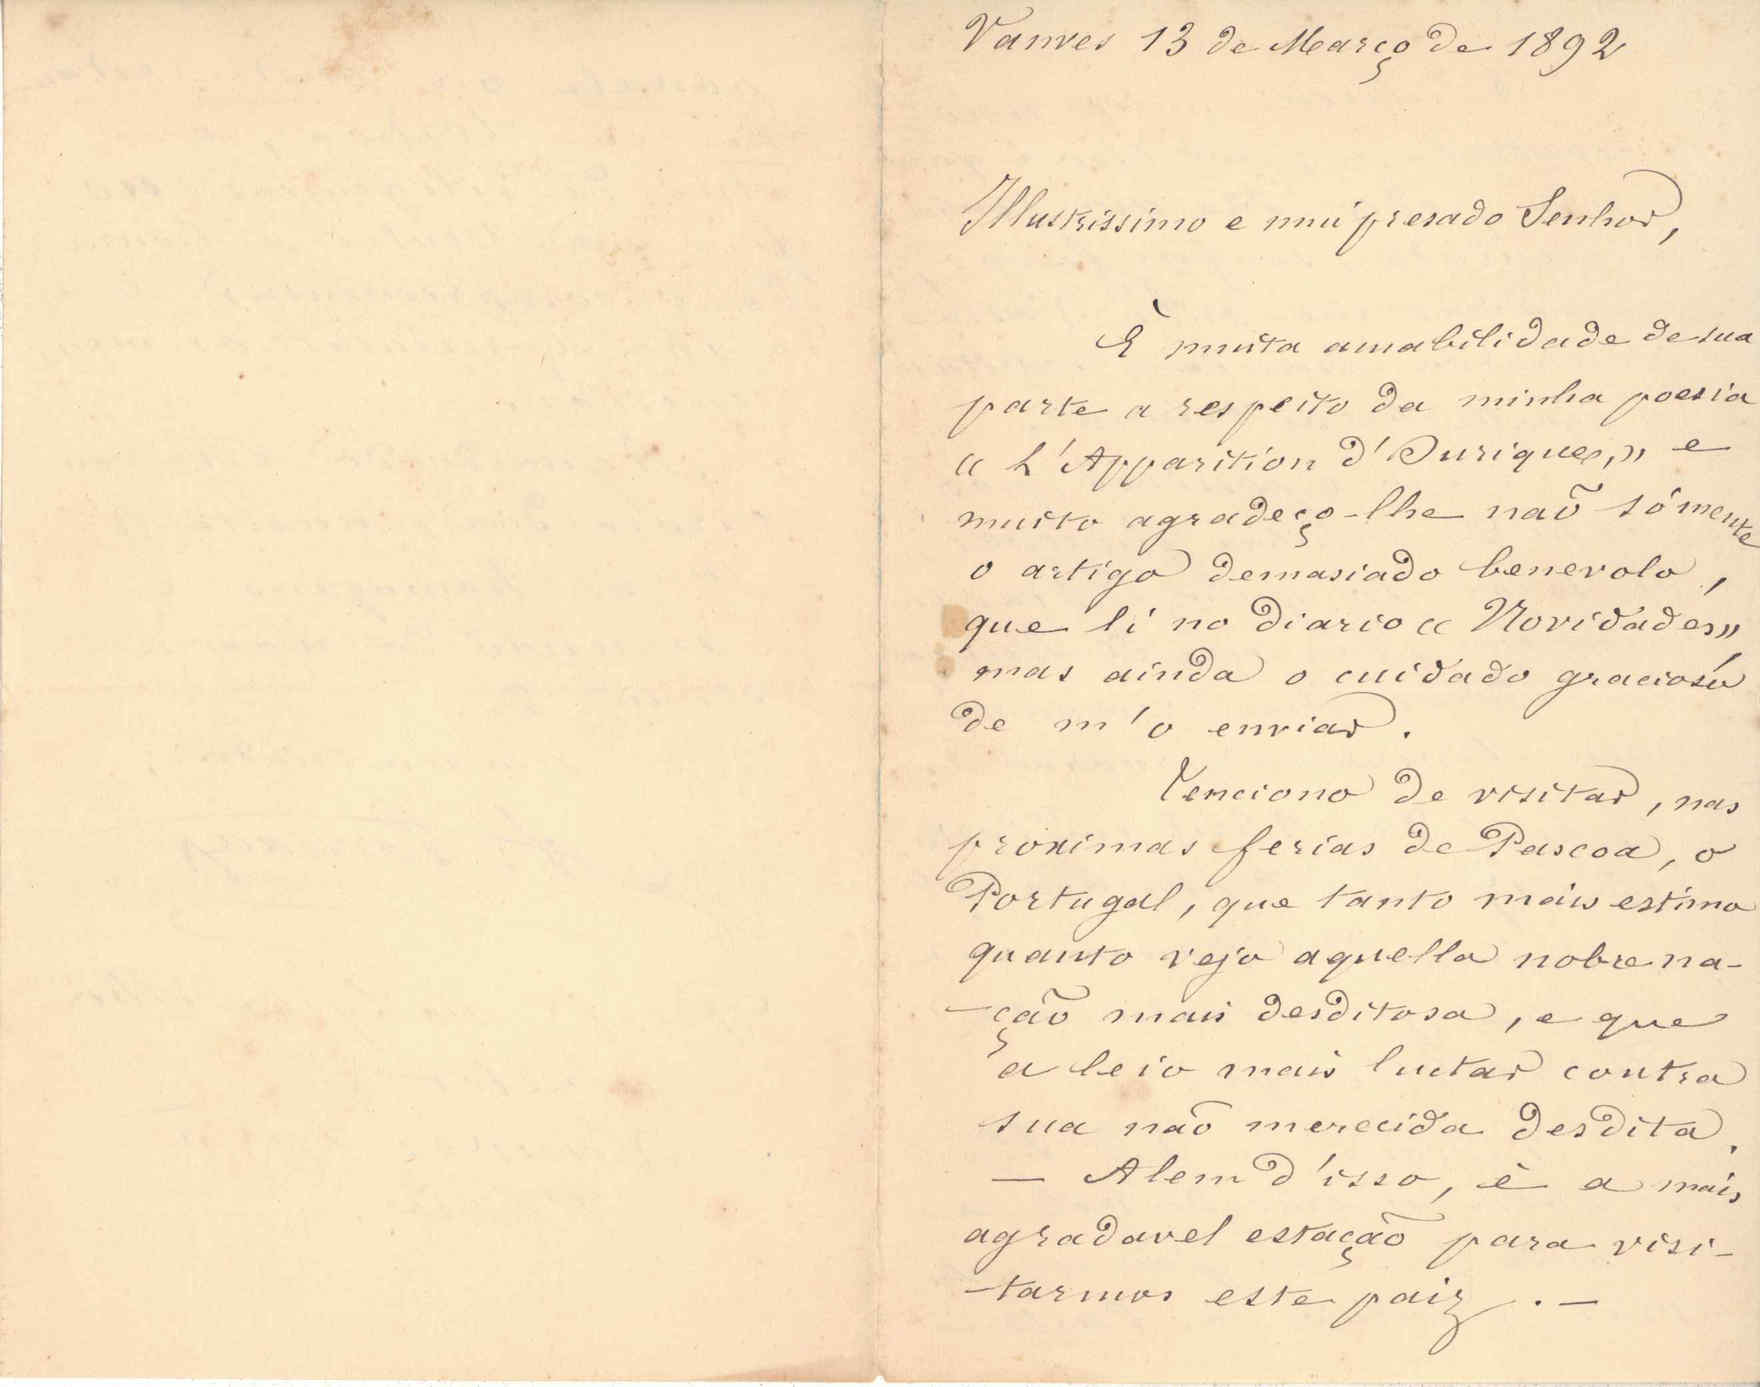 Vanves 13 de Março de 1892
Illustrissimo e mui presado Senhor,
È muita amabilidade de sua
parte a respeito da minha poesia
« L'Apparition d'Ourique,» e
muito agradeço-lhe naõ sómente
o artigo demasiado benevolo,
que li no diario « Novidades»,
mas ainda o cuidado gracioso
de m'o enviar.
Tenciono de visitar, nas
proximas ferias de Pascoa, o
Portugal, que tanto mais estimo
quanto vejo aquella nobre na-
-çaõ mais desditosa, e que
a leio mais luctar contra
sua naõ merecida desdita.
— Alem d'isso, è a mais
agradavel estaçaõ para visi-
-tarmos este paiz. —